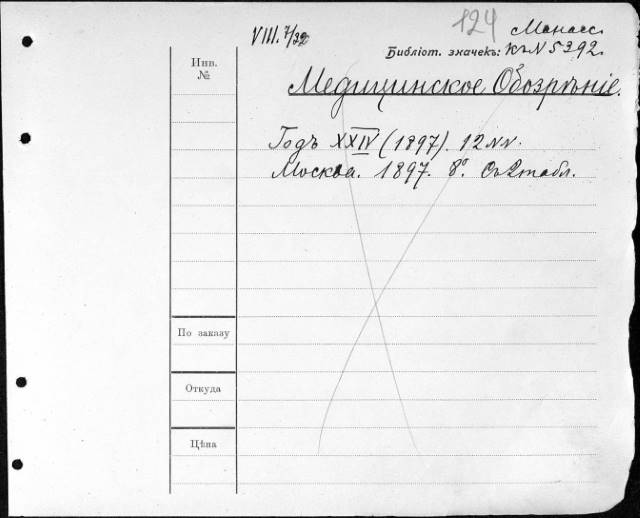 124
VIII. 7/32
Манасс.
Библіот. значекъ: къ N 5392.
Инв.
№
Медицинское Обозрѣніе.
Годъ XXIV (1897). 12 NN.
Москва. 1897. 8º. Съ 2 табл.
По заказу
Откуда
Цѣна